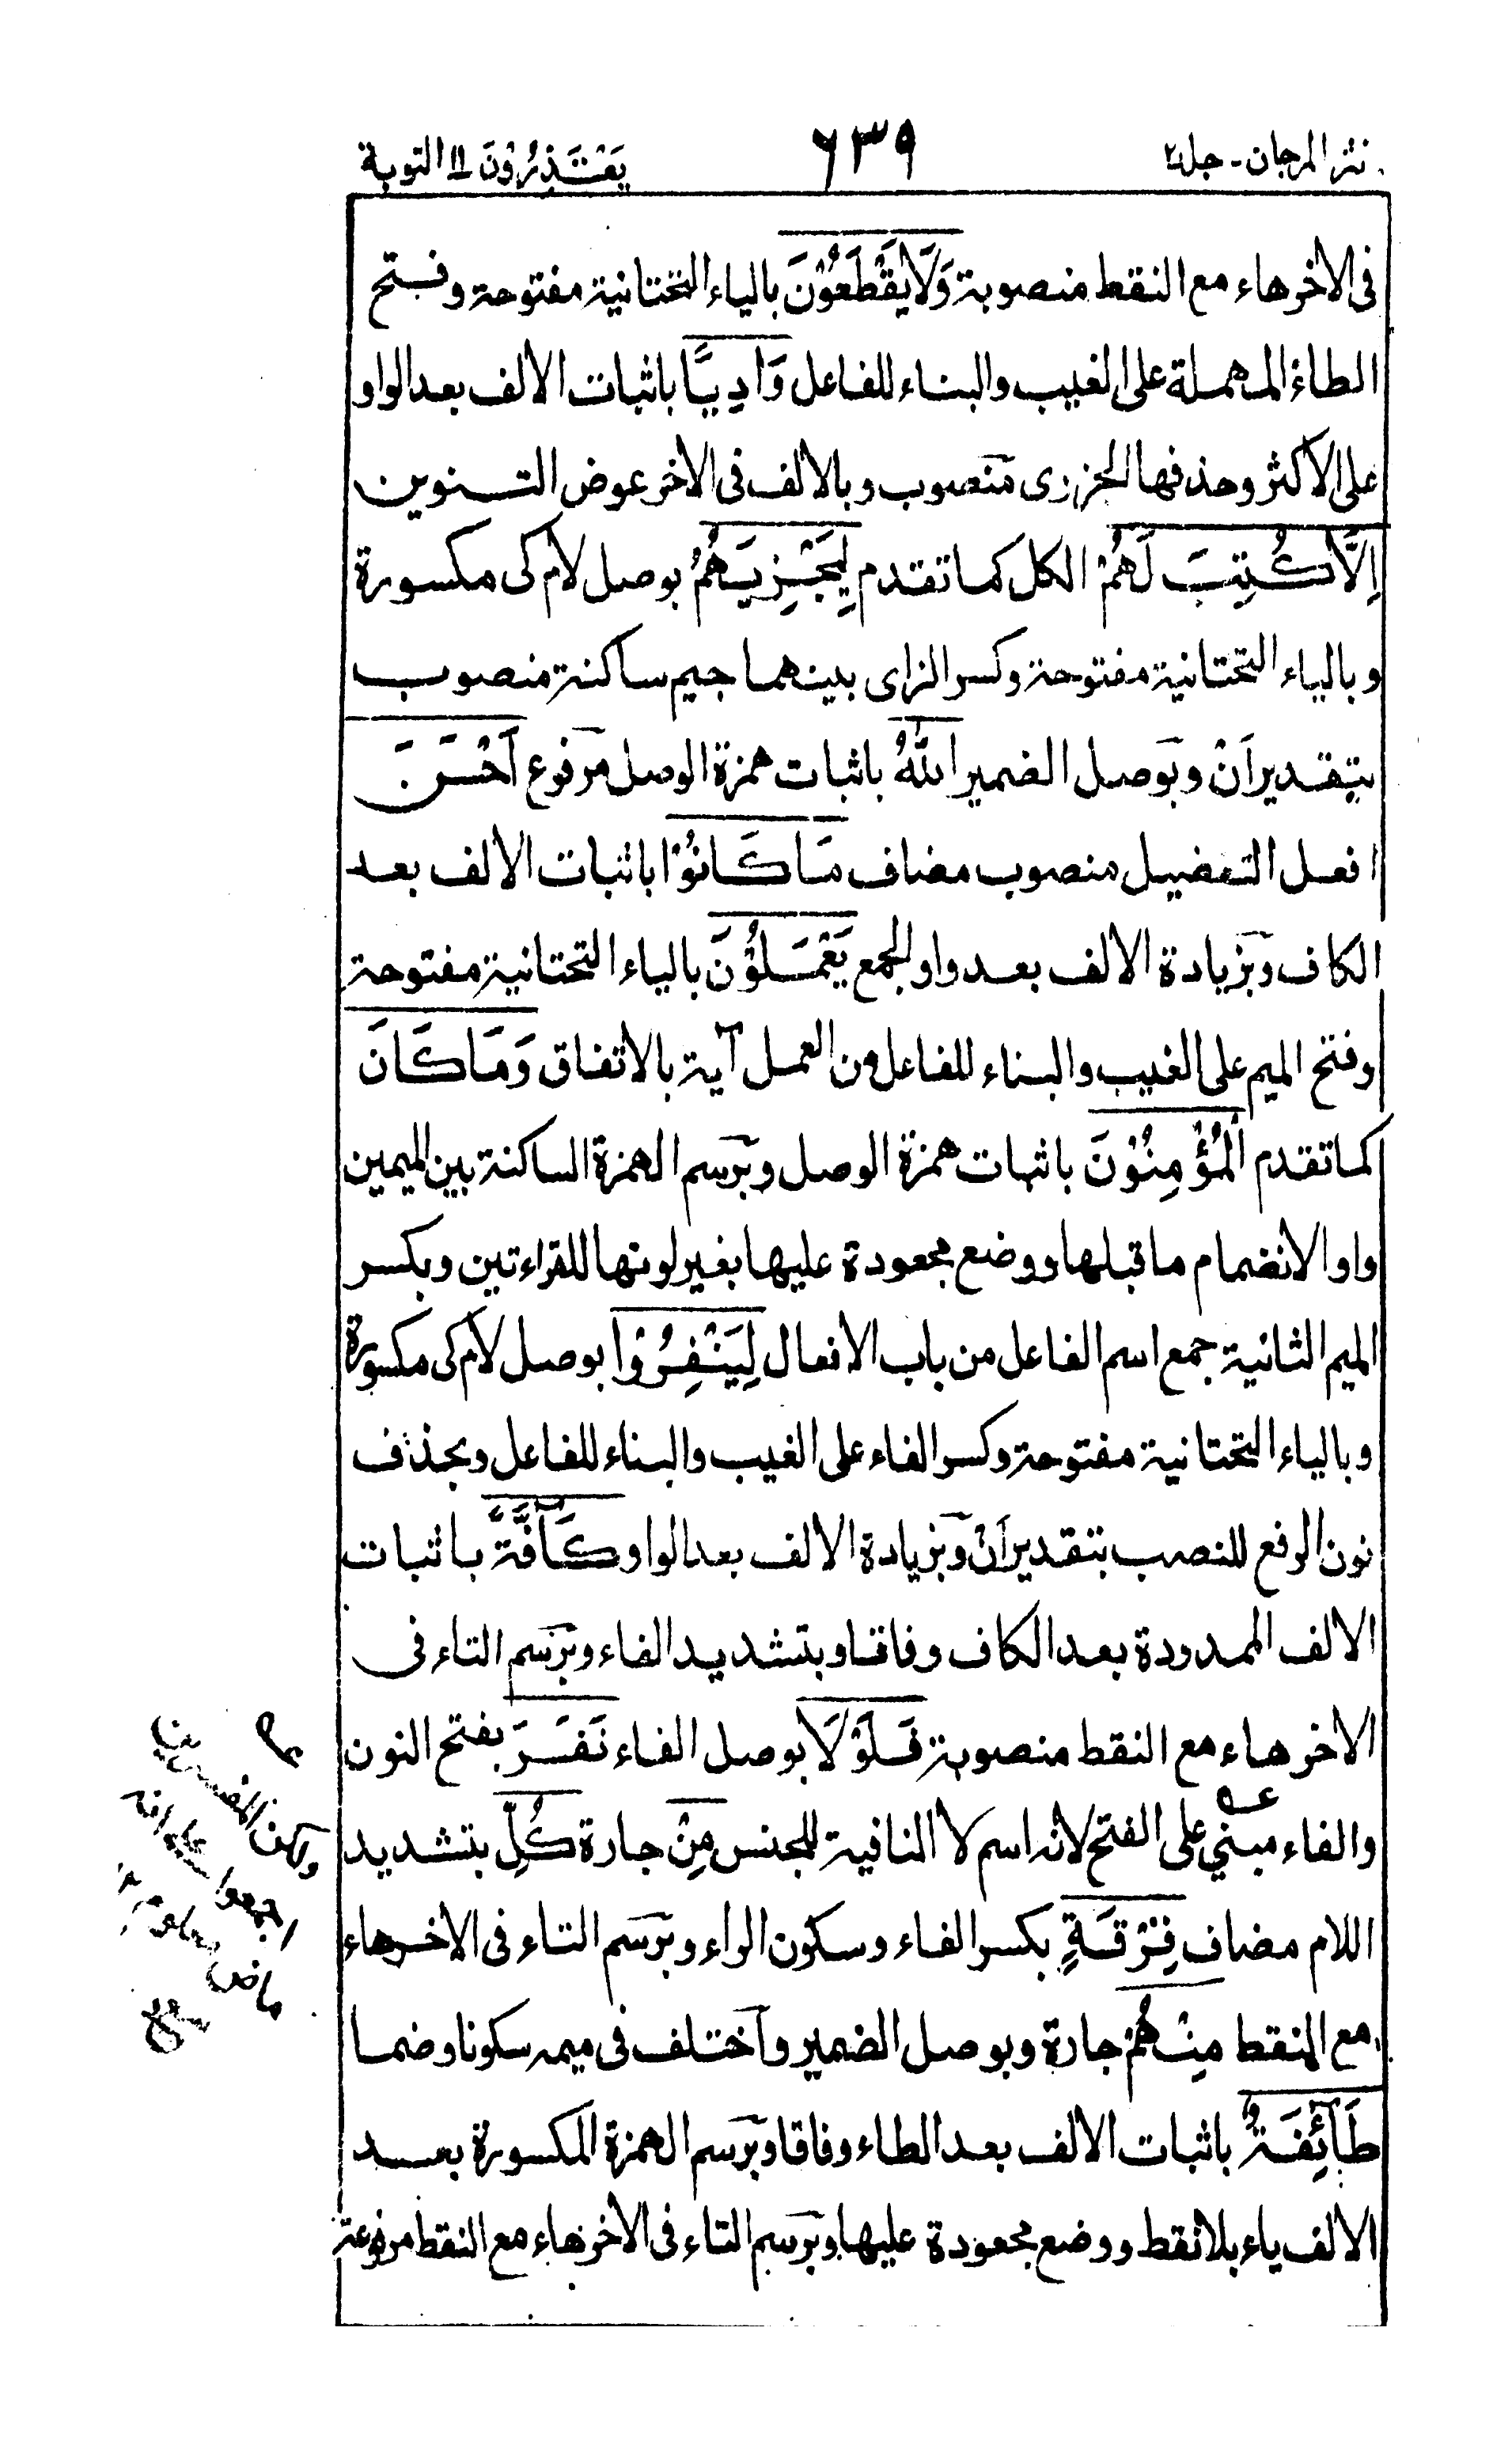 نثر المرجان - جلد٢
٦٣٩
يَعْتَذِرُوْنَ ١١ التوبة
فى الاخر هاء مع النقط منصوبة وَلَا يَقْطَعُوْنَ بالياء التحتانية مفتوحة وفتح
الطاء المهملة على الغيب والبناء للفاعل وَادِيًا باثبات الالف بعد الواو
على الاكثر وحذفها الجزرى منصوب وبالالف فى الاخر عوض التنوين
اِلَّا كُتِبَ لَهُمْ الكل كما تقدم لِيَجْزِيَهُمُ بوصل لام كى مكسورة
وبالياء التحتانية مفتوحة وكسر الزاى بينهما جيم ساكنة منصوب
بتقدير اَنْ وبوصل الضمير اللّٰهُ باثبات همزة الوصل مرفوع اَحْسَنَ
افعل التفضيل منصوب مضاف مَا كَانُوْا باثبات الالف بعد
الكاف وبزيادة الالف بعد واو الجمع يَعْمَلُوْنَ بالياء التحتانية مفتوحة
وفتح الميم على الغيب والبناء للفاعل من العمل آية بالاتفاق وَمَا كَانَ
كما تقدم الْمُؤْمِنُوْنَ باثبات همزة الوصل وبرسم الهمزة الساكنة بين الميمين
واو الانضمام ما قبلها ووضع مجعودة عليها بغير لونها للقراءتين وبكسر
الميم الثانية جمع اسم الفاعل من باب الافعال لِيَنْفِرُوْا بوصل لام كى مكسورة
وبالياء التحتانية مفتوحة وكسر الفاء على الغيب والبناء للفاعل وبحذف
نون الرفع للنصب بتقدير اَنْ وبزيادة الالف بعد الواو كَآفَّةً باثبات
الالف الممدودة بعد الكاف وفاقا وبتشديد الفاء وبرسم التاء فى
الاخر هاء مع النقط منصوبة فَلَوْلَا بوصل الفاء نَفَرَ بفتح النون
والفاء مبني على الفتح لانه اسم لا النافية للجنس مِنْ جارة كُلِّ بتشديد
اللام مضاف فِرْقَةٍ بكسر الفاء وسكون الراء وبرسم التاء فى الاخر هاء
مع النقط مِنْهُمْ جارة وبوصل الضمير واختلف فى ميمه سكونا وضما
طَآئِفَةٌ باثبات الالف بعد الطاء وفاقا وبرسم الهمزة المكسورة بعد
الالف ياء بلا نقط ووضع مجعودة عليها وبرسم التاء فى الاخر هاء مع النقط مرفوعة
عـه
ولكن المفسرين
اجمعوا على انه
ماض معلوم